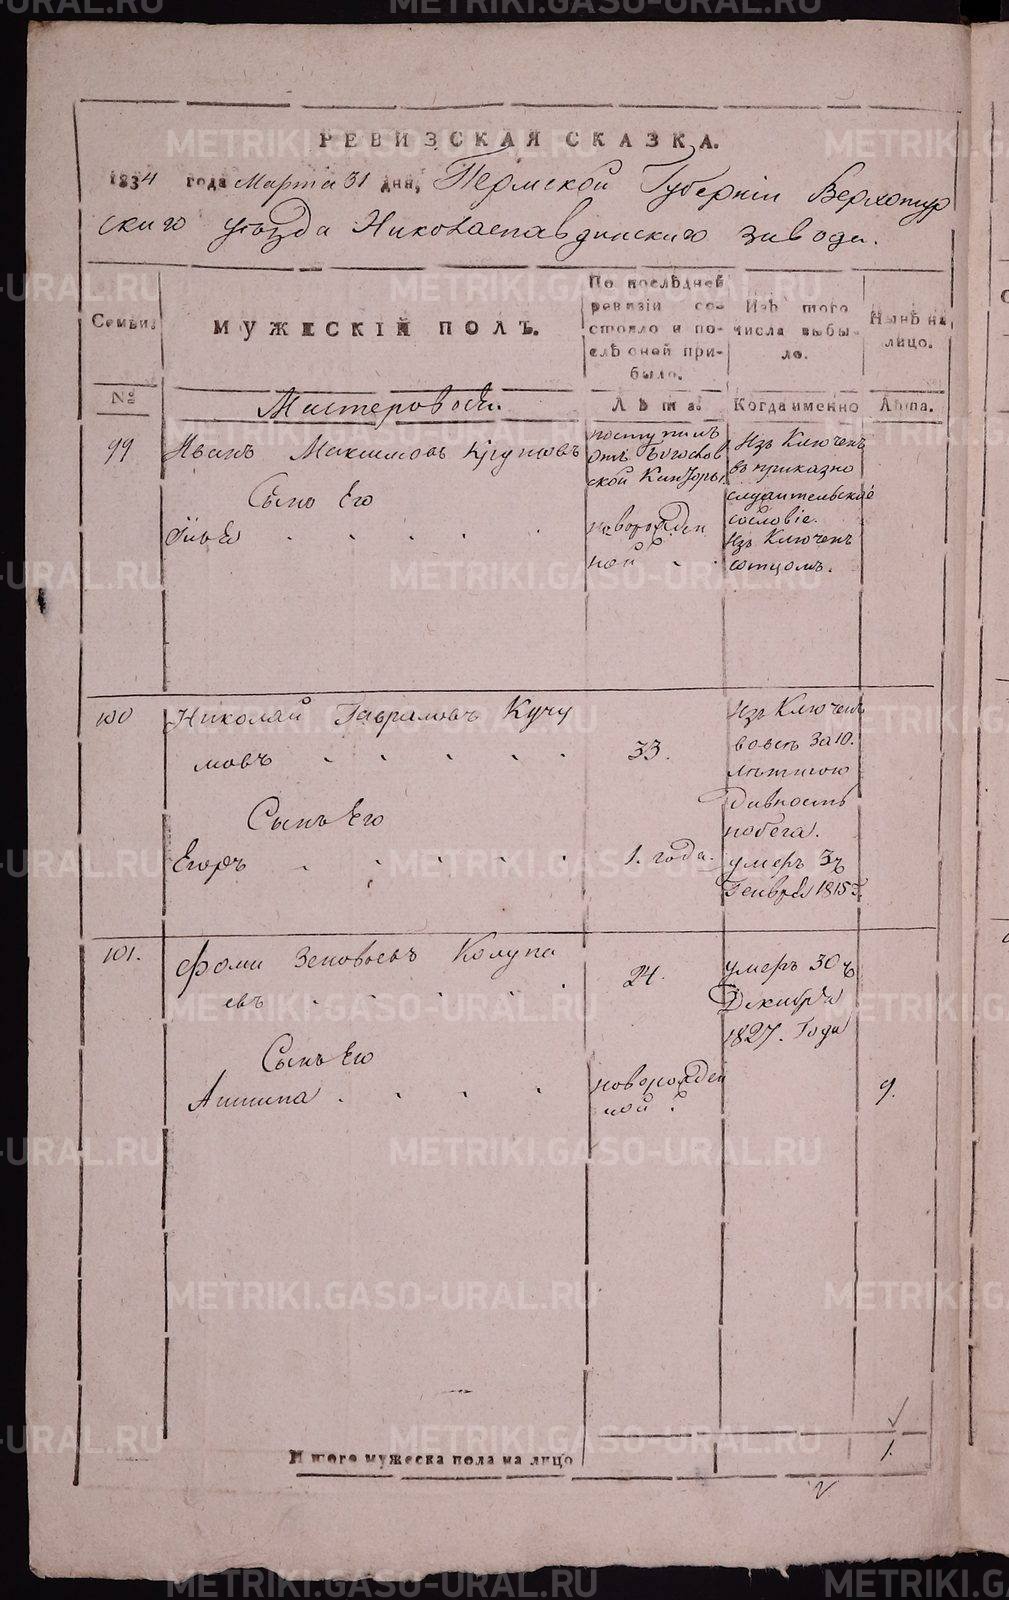 РЕВИЗСКАЯ СКАЗКА.
1834 года Марта 31 дня, Пермской Губерніи Верхотур
скаго уѣзда Николаепавдинскаго завода.
Семьи
МУЖЕСКІЙ ПОЛЪ.
По послѣдней ревизіи со-
стояло и по-
слѣ оной при-
было.
Изъ того
числа выбы-
ло.
Нынѣ на
лицо.
№
Мастеровые.
Лѣта.
Когда именно
Лѣта.
99
Иванъ Максимовъ
поступилъ
отъ Богослов
ской Конторы
Изъ Ключенъ
въ приказно
служительское
сословіе.
Сынъ Его
Илья
новорожден
ной
Изъ Ключенъ
сотцомъ.
100
Николай Гавриловъ Кучу
мовъ
33.
Изъ Ключенъ
за 10.
лѣтнюю
давность
побега.
Сынъ Его
Егоръ
1. года.
умеръ 3ъ
Генваря 1815 г.
101.
Фома Зеновьевъ Колупа
евъ
24.
умеръ 30ъ
Декабря
1827. Года
Сынъ Его
Антипа
новорожден
ной
9.
Итого мужеска пола на лицо
1.
METRIKI.GASO-URAL.RU